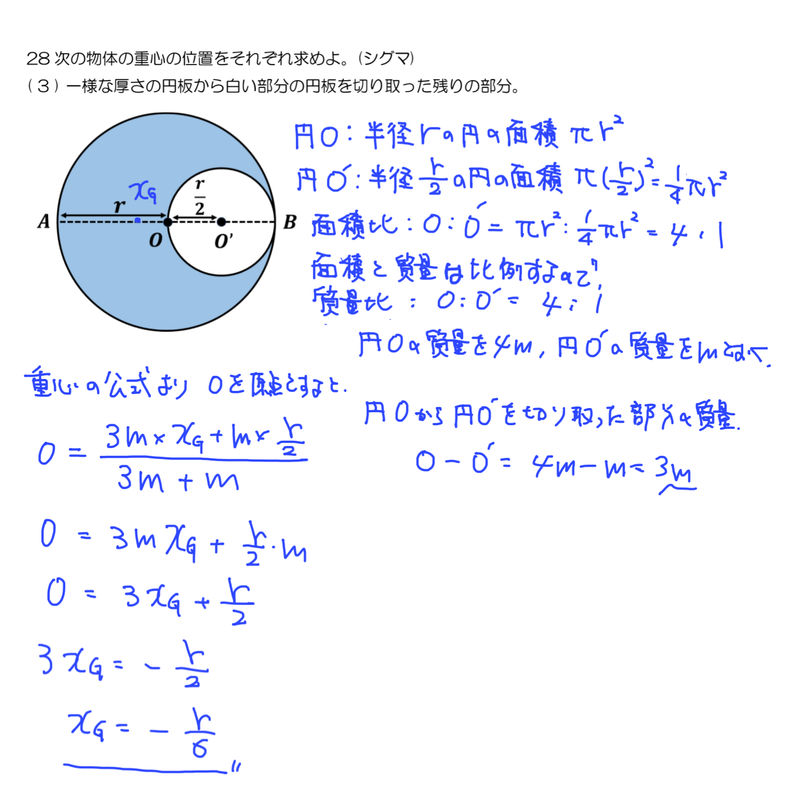 28 次の物体の重心の位置をそれぞれ求めよ。(シグマ)
(3) 一様な厚さの円板から白い部分の円板を切り取った残りの部分。
円O:半径rの円の面積 πr²
円O′:半径r/2の円の面積 π(r/2)²=1/4πr²
面積比:O:O′=πr²:1/4πr²=4:1
面積と質量は比例するので、
質量比:O:O′=4:1
円Oの質量を4m,円O′の質量をmとなべ、
円Oから円O′を切り取った部分の質量.
O-O′=4m-m=3m
x_G
r
r/2
A
O
O'
B
重心の公式より Oを原点とすると、
0 = (3m×x_G+m×r/2)/(3m+m)
0 = 3mx_G+r/2・m
0 = 3x_G+r/2
3x_G=-r/2
x_G=-r/6 〃